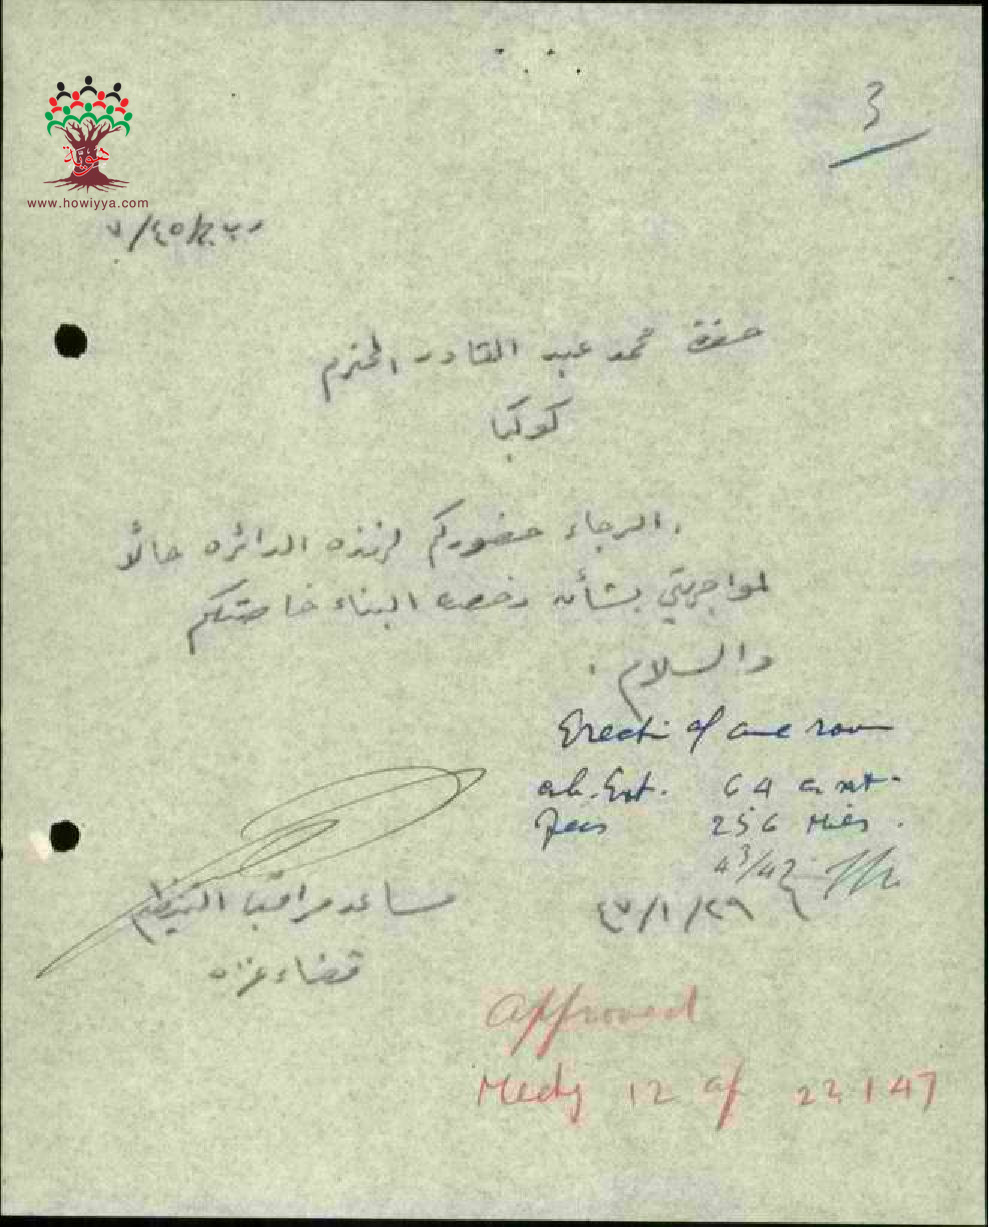 3
هوية
www.howiyya.com
حضرة محمد عبد القادر المحترم
كوكبا
الرجاء حضوركم لهذه الدائره حالاً
لمواجهتي بشأن رخصة البناء خاصتكم
والسلام .
Erecti of one room
ab. Ext. 64
Fees 256 Mils .
٤٧/١/٢٩
مساعد مراقب التنظيم
قضاء غزه
Approved
Meetg 12 of 22 1 47